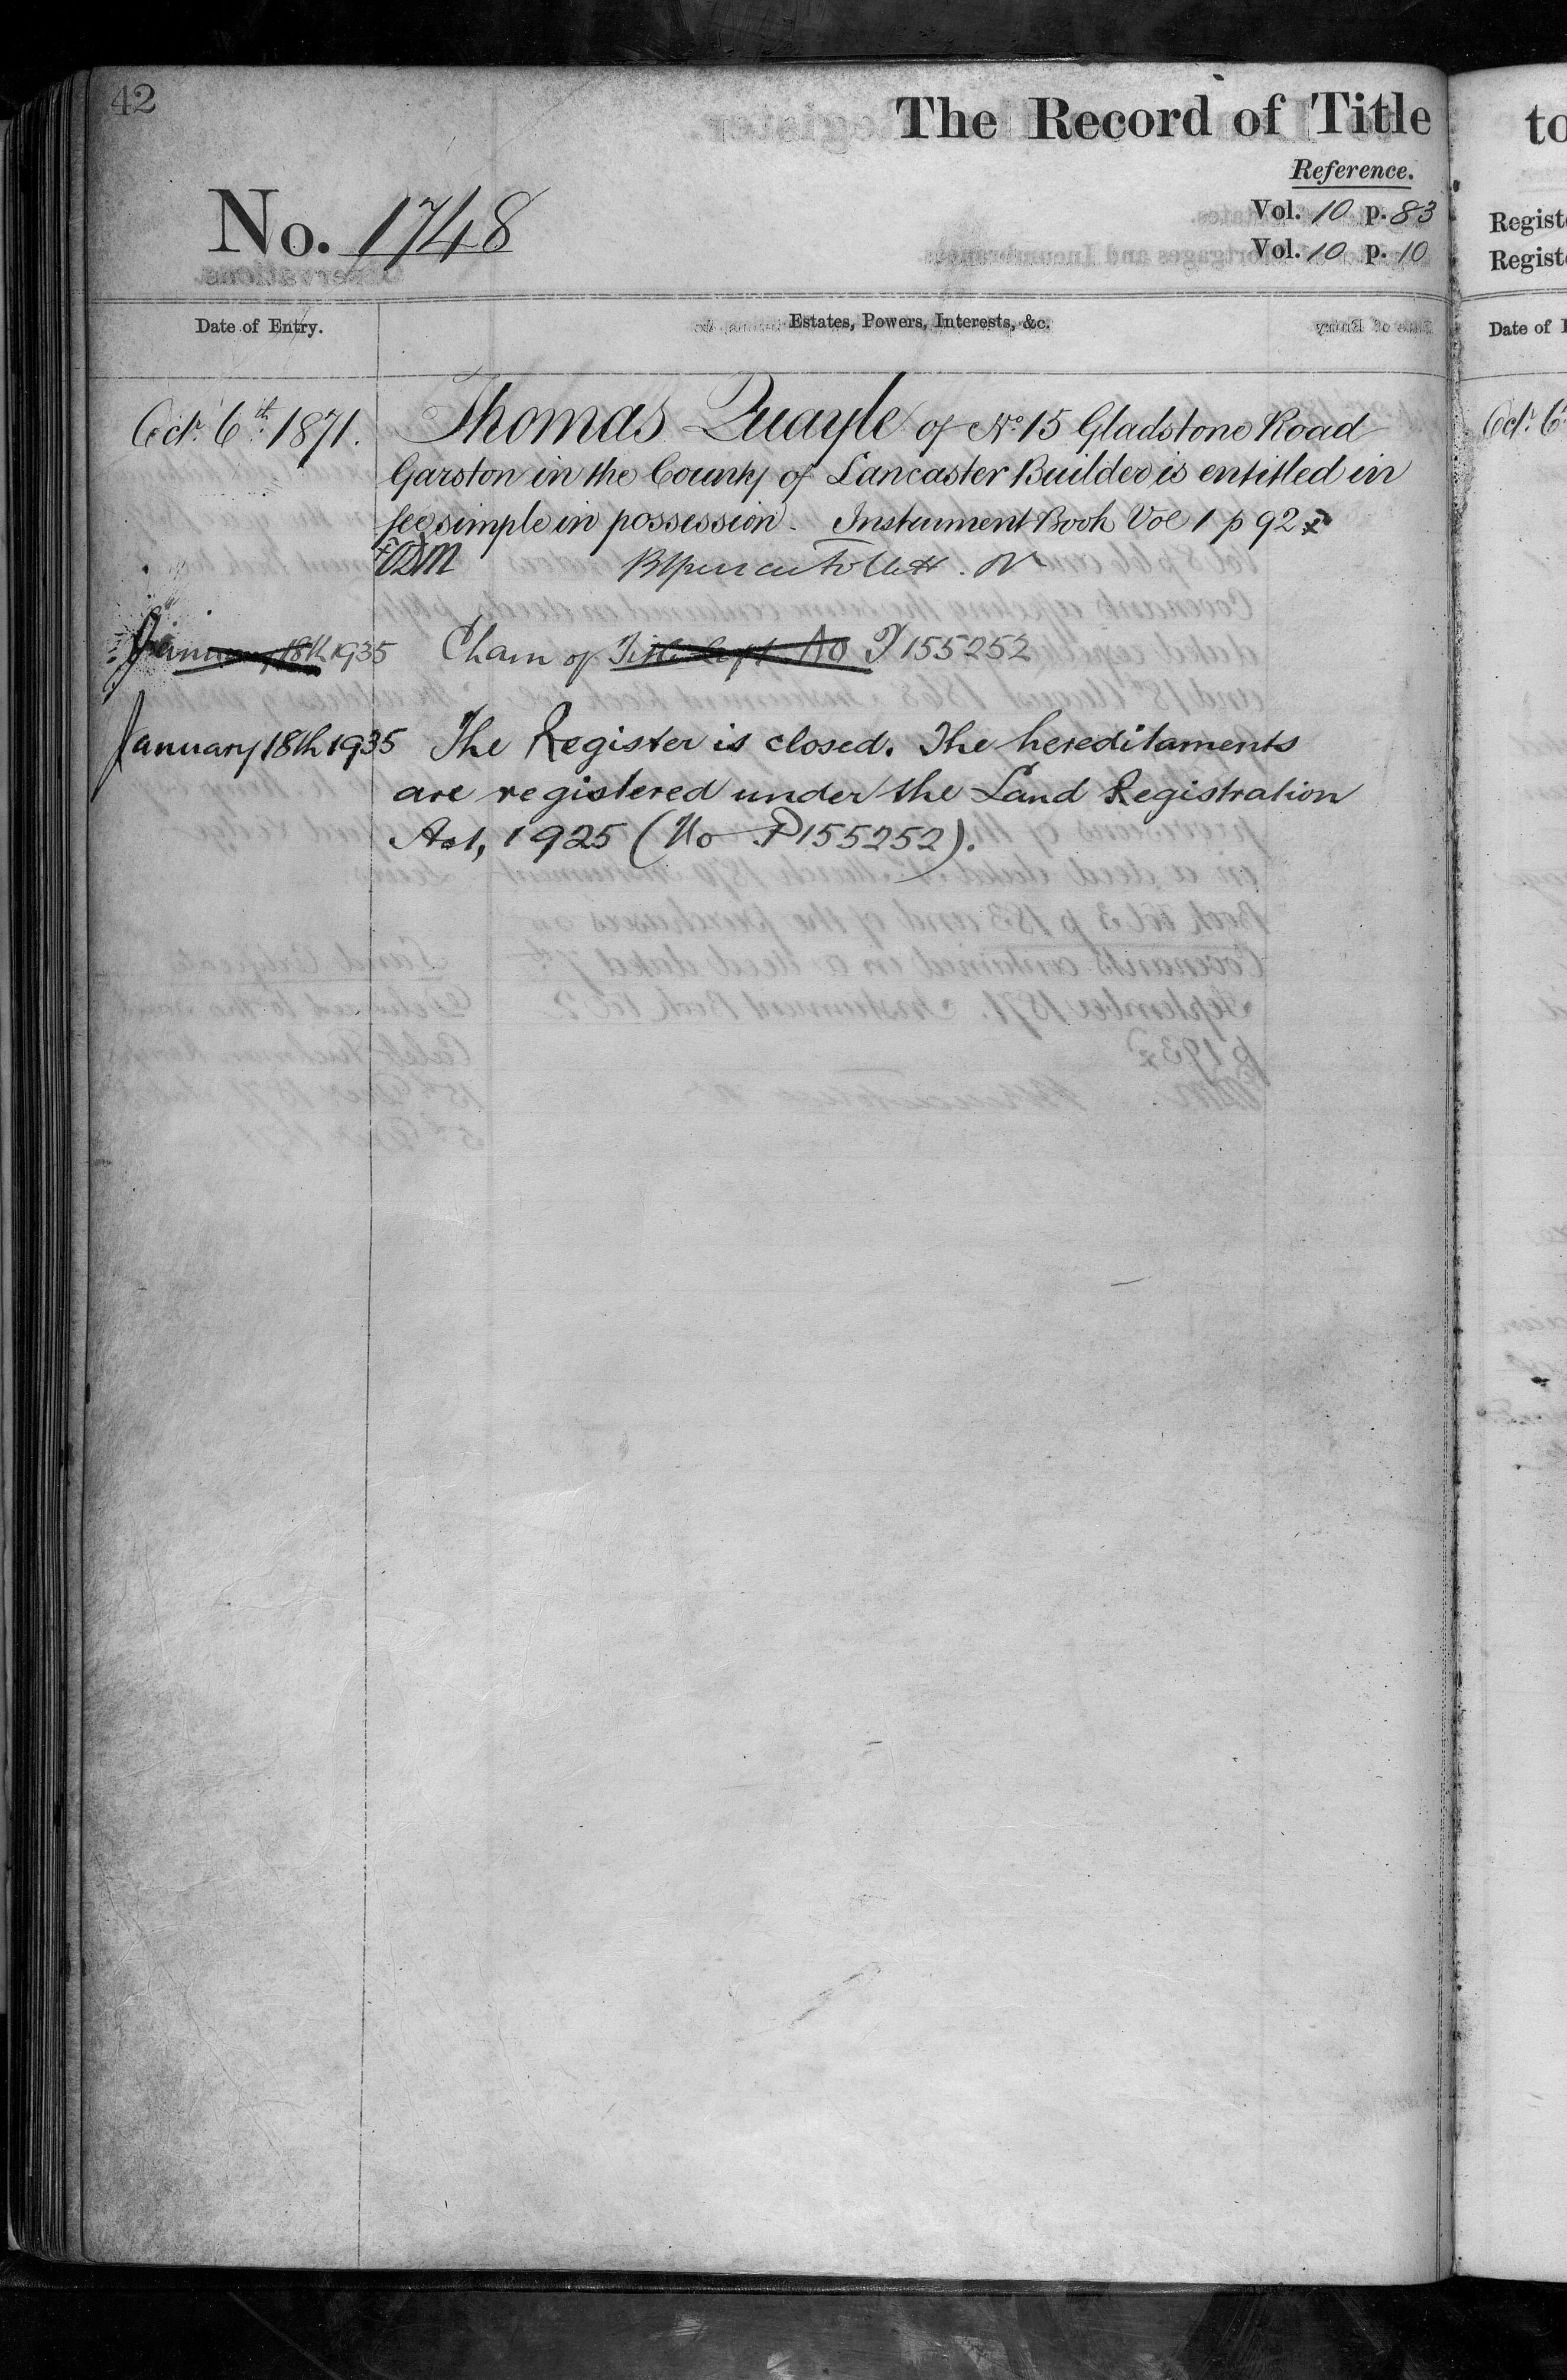 42
The Record of Title
Reference.
No. 1748
Vol. 10 p. 83
Vol. 10 p. 10
Date of Entry.
Estates, Powers, Interests, &c.
Octr. 6th 1871.
Thomas Quayle of No 15 Gladstone Road
Garston in the County of Lancaster Builder is entitled in
fee simple in possession. Instrument Book Vol 1 p 92
January 18th 1935 Chain of Title No P155252
January 18th 1935 The Register is closed. The hereditaments
are registered under the Land Registration
Act, 1925 (No P155252).
to
Regist
Regist
Date of
Octr. 6